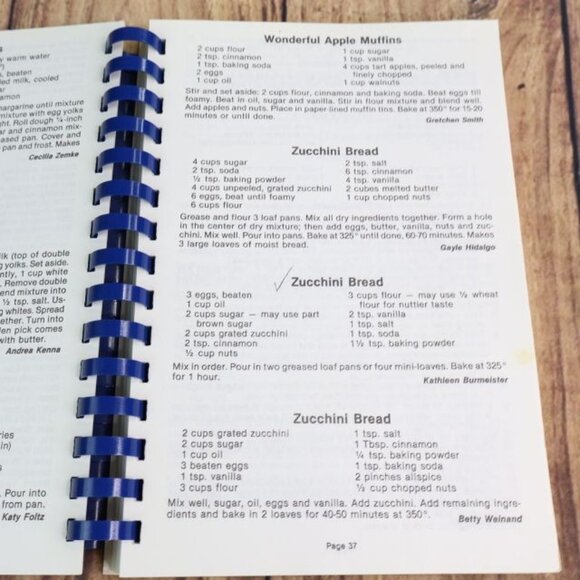 s
y warm water
s, beaten
lled milk, cooled
ar
amon
nargarine until mixture
mixture with egg yolks
ght. Roll dough ¼-inch
ar and cinnamon mix-
ased pan. Cover and
pan and frost. Makes
Cecilia Zemke
ilk (top of double
g yolks. Set aside.
ntly, 1 cup white
. Remove double
end mixture into
½ tsp. salt. Us-
g whites. Spread
ether. Turn into
den pick comes
with butter.
Andrea Kenna
ries
in)
. Pour into
from pan.
Katy Foltz
Wonderful Apple Muffins
2 cups flour
2 tsp. cinnamon
1 tsp. baking soda
2 eggs
1 cup oil
1 cup sugar
1 tsp. vanilla
4 cups tart apples, peeled and
finely chopped
1 cup walnuts
Stir and set aside: 2 cups flour, cinnamon and baking soda. Beat eggs till
foamy. Beat in oil, sugar and vanilla. Stir in flour mixture and blend well.
Add apples and nuts. Place in paper lined muffin tins. Bake at 350° for 15-20
minutes or until done.
Gretchen Smith
Zucchini Bread
4 cups sugar
2 tsp. soda
½ tsp. baking powder
4 cups unpeeled, grated zucchini
6 eggs, beat until foamy
6 cups flour
2 tsp. salt
6 tsp. cinnamon
4 tsp. vanilla
2 cubes melted butter
1 cup chopped nuts
Grease and flour 3 loaf pans. Mix all dry ingredients together. Form a hole
in the center of dry mixture; then add eggs, butter, vanilla, nuts and zuc-
chini. Mix well. Pour into pans. Bake at 325° until done, 60-70 minutes. Makes
3 large loaves of moist bread.
Gayle Hidalgo
Zucchini Bread
3 eggs, beaten
1 cup oil
2 cups sugar — may use part
brown sugar
2 cups grated zucchini
2 tsp. cinnamon
½ cup nuts
3 cups flour — may use ½ wheat
flour for nuttier taste
2 tsp. vanilla
1 tsp. salt
1 tsp. soda
1½ tsp. baking powder
Mix in order. Pour in two greased loaf pans or four mini-loaves. Bake at 325°
for 1 hour.
Kathleen Burmeister
Zucchini Bread
2 cups grated zucchini
2 cups sugar
1 cup oil
3 beaten eggs
1 tsp. vanilla
3 cups flour
1 tsp. salt
1 Tbsp. cinnamon
¼ tsp. baking powder
1 tsp. baking soda
2 pinches allspice
½ cup chopped nuts
Mix well, sugar, oil, eggs and vanilla. Add zucchini. Add remaining ingre-
dients and bake in 2 loaves for 40-50 minutes at 350°.
Betty Weinand
Page 37